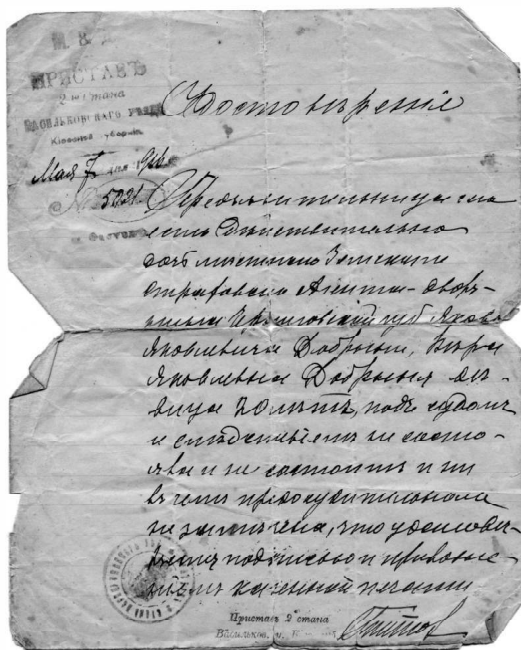 М. В. Д.
ПРИСТАВЪ
2 го стана
ВАСИЛЬКОВСКАГО УѢЗДА
Кіевской губерніи
Мая 7 дня 1916
№ 5021
г. Фастовъ
Удостовѣреніе
Предъявительница сего
есть дѣйствительно
дочь мѣстнаго Земскаго
страховаго Агента – дворя-
нина губ. Якова
Яковлевича Добрыни, Вѣра
Яковлевна Добрыня дѣ-
вица 20 лѣтъ, подъ судомъ
и слѣдствіемъ не состо-
яла и не состоитъ и ни
въ чемъ предосудительномъ
не замѣчена, что удостовѣ-
ряю подписью и приложе-
ніемъ казенной печати
Приставъ 2 го стана
Васильков. у. К